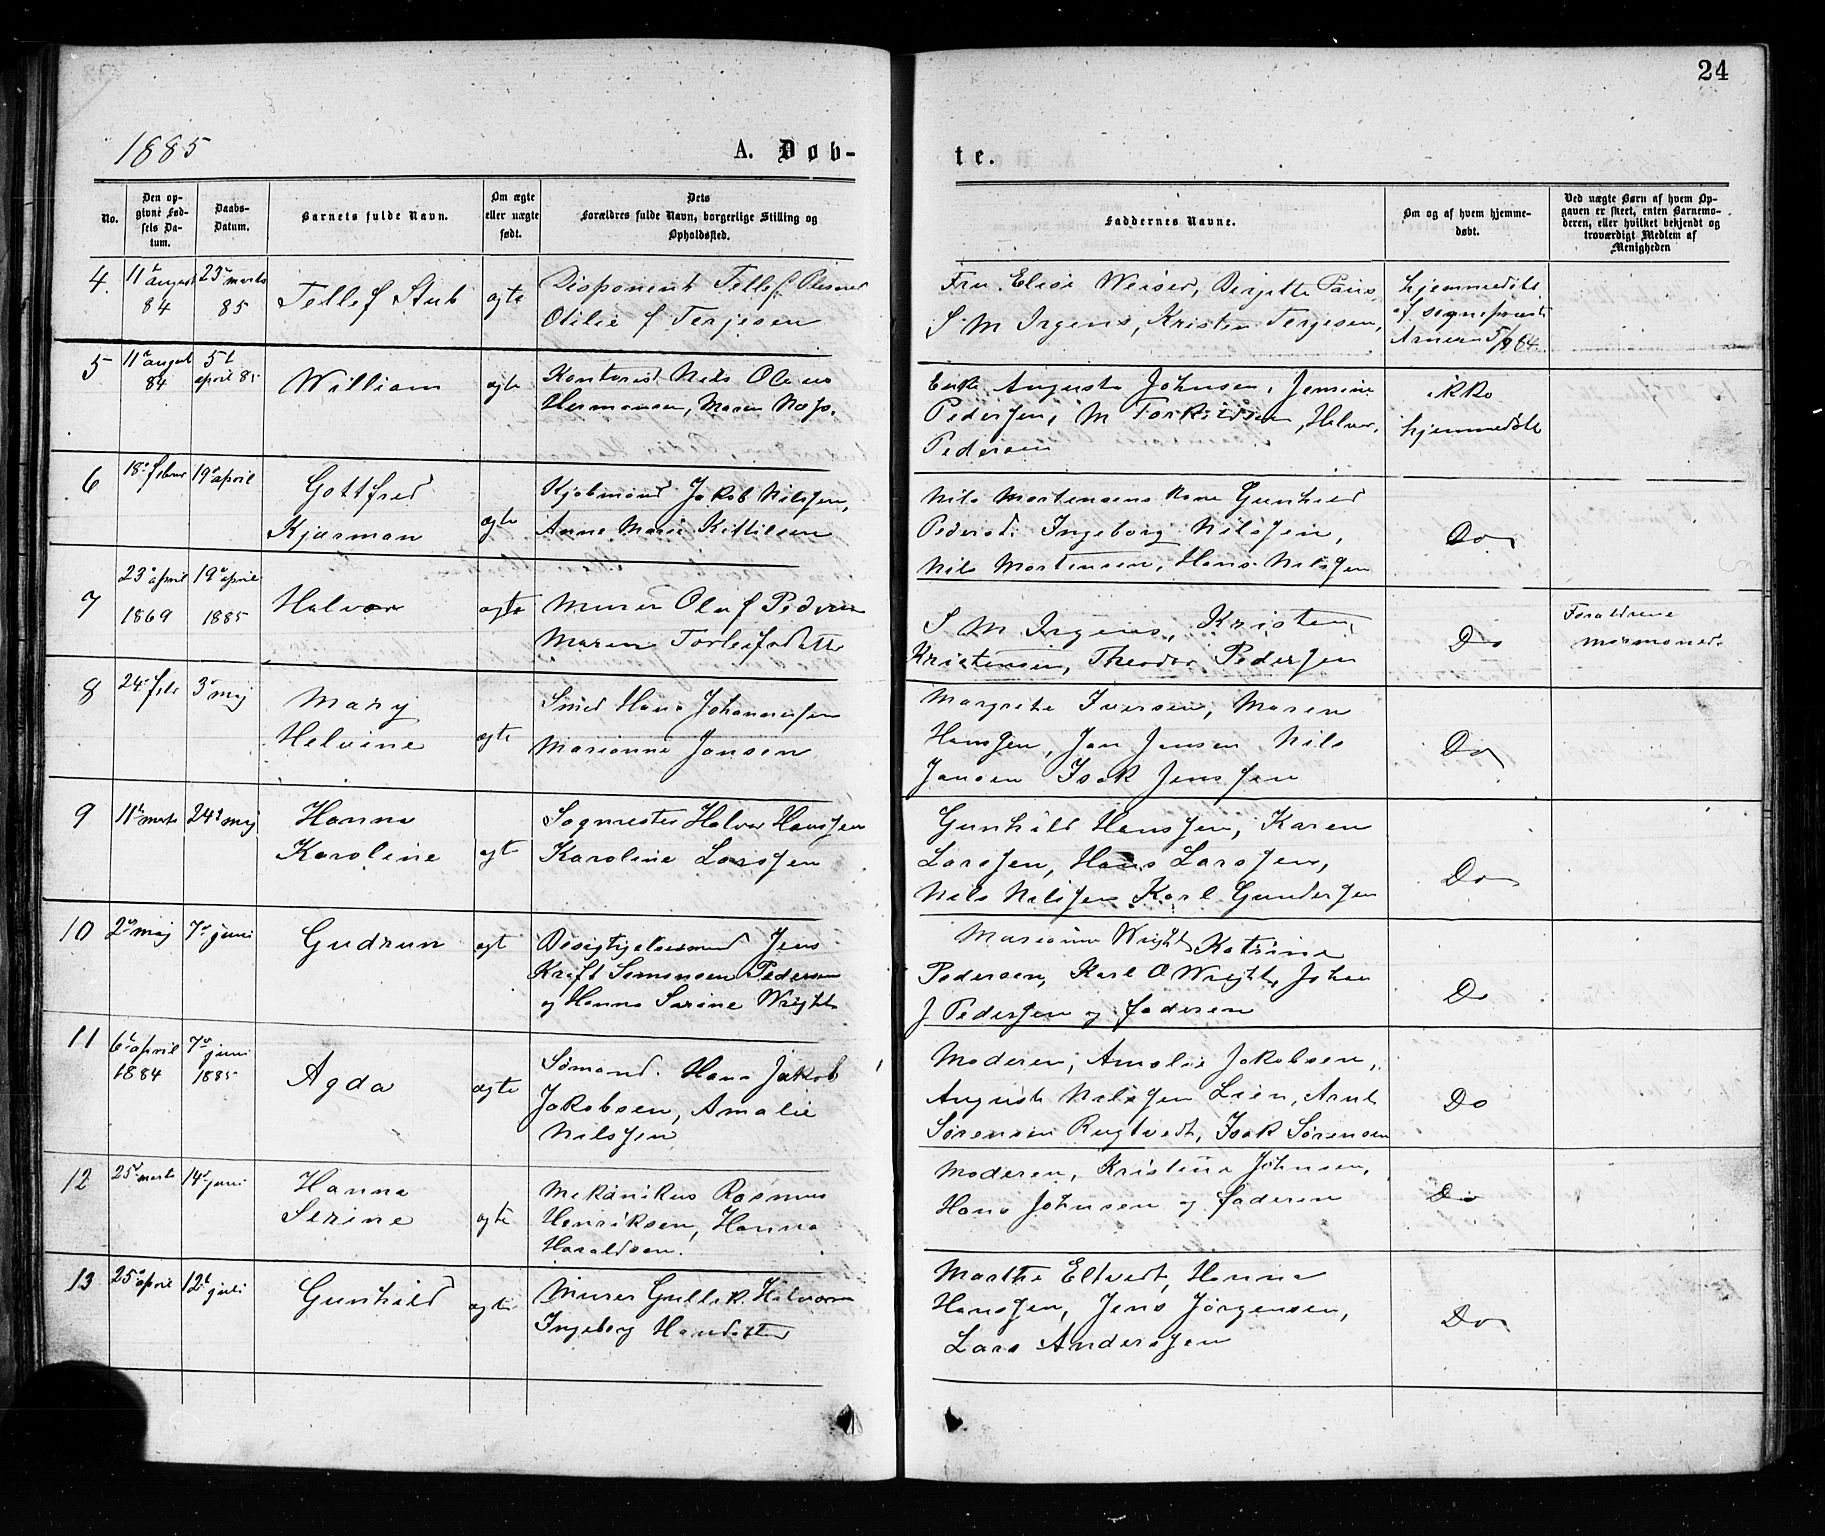 24
1885
A. Døb-
te.
No.
Den op-
givne Fød-
sels Da-
tum.
Daabs-
Datum.
Barnets fulde Navn.
Om ægte
eller uægte
født.
Dets
Forældres fulde Navn, borgerlige Stilling og
Opholdssted.
Faddernes Navne.
Om og af hvem hjemme-
døbt.
Ved uægte Børn af hvem Op-
gaven er skeet, enten Barnemo-
deren, eller hvilket bekjendt og
troværdigt Medlem af
Menigheden
4.
11t august
84
23de marts
85
Tellef Stub
ægte
Disponent Tellef
Otilie f Terjesen
Fru Elise Weiser, Birgitte Paus
S M Irgens, Kristen Terjesen,
hjemmedøbt
af sognepræst
5/9 84.
5
11t august
84
5t
april 85
William
ægte
Kontorist Nils Oleus
Hermansen, Maren
Enke Augusta Johnsen, Jensine
Pedersen, M Torkildsen, Halvor
Pedersen
ikke
hjemmedøbt
6
18de februar
19de april
Gottfred
Kjarman
ægte
Kjøbmand Jakob Nilssen,
Anne Marie Kittilsen
Nils Mortensens Kone Gunhild
Pedersd. Ingeborg Nilssen,
Nils Mortensen, Hans Nilssen
Do
7
23de april
1869
19de april
1885
Halvor
ægte
Murer Oluf Pedersen
Maren Torleifsdatter
S M Irgens, Kristen
Kristensen, Theodor Pedersen
Do
Forældrene
mormoner.
8
24de febr
3de maj
Mary
Helvine
ægte
Smed Hans Johannessen
Marianne Jansen
Margrete Iversen, Maren
Hanssen, Jan Jansen Nils
Jansen Isak Jenssen
Do
9
11te marts
24de maj
Hanna
Karoline
ægte
Sagmester Halvor Hanssen
Karoline Larssen
Gunhild Hanssen, Karen
Larssen, Hans Larssen,
Nils Nilssen Karl Gundersen
Do
10
2den maj
7de juni
Gudrun
ægt
Besigtigelsesmand Jens
Kraft Simonsen Pedersen
og Hanna Serine Wright
Marianne Wright Katrine
Pedersen, Karl O Wright, Johan
J Pedersen og faderen
Do
11
6te april
1884
7de juni
1885
Agda
ægte
Sømand. Hans Jakob
Jakobsen, Amalie
Nilssen
Moderen, Amalie Jakobsen,
August Nilssen Lien, Arnt
Sørensen Rugtvedt, Isak Sørensen
Do
12
25de marts
14de juni
Hanna
Serine
ægte
Mekanikus Rasmus
Henriksen, Hanna
Haraldsen.
Moderen, Kristine Johnsen,
Hans Johnsen og faderen
Do
13
25de april
12t juli
Gunhild
ægte
Murer Gullik Halvorsen
Ingeborg Hansdatter
Marthe Eltvedt, Hanna
Hanssen, Jens Jørgensen,
Lars Anderssen
Do